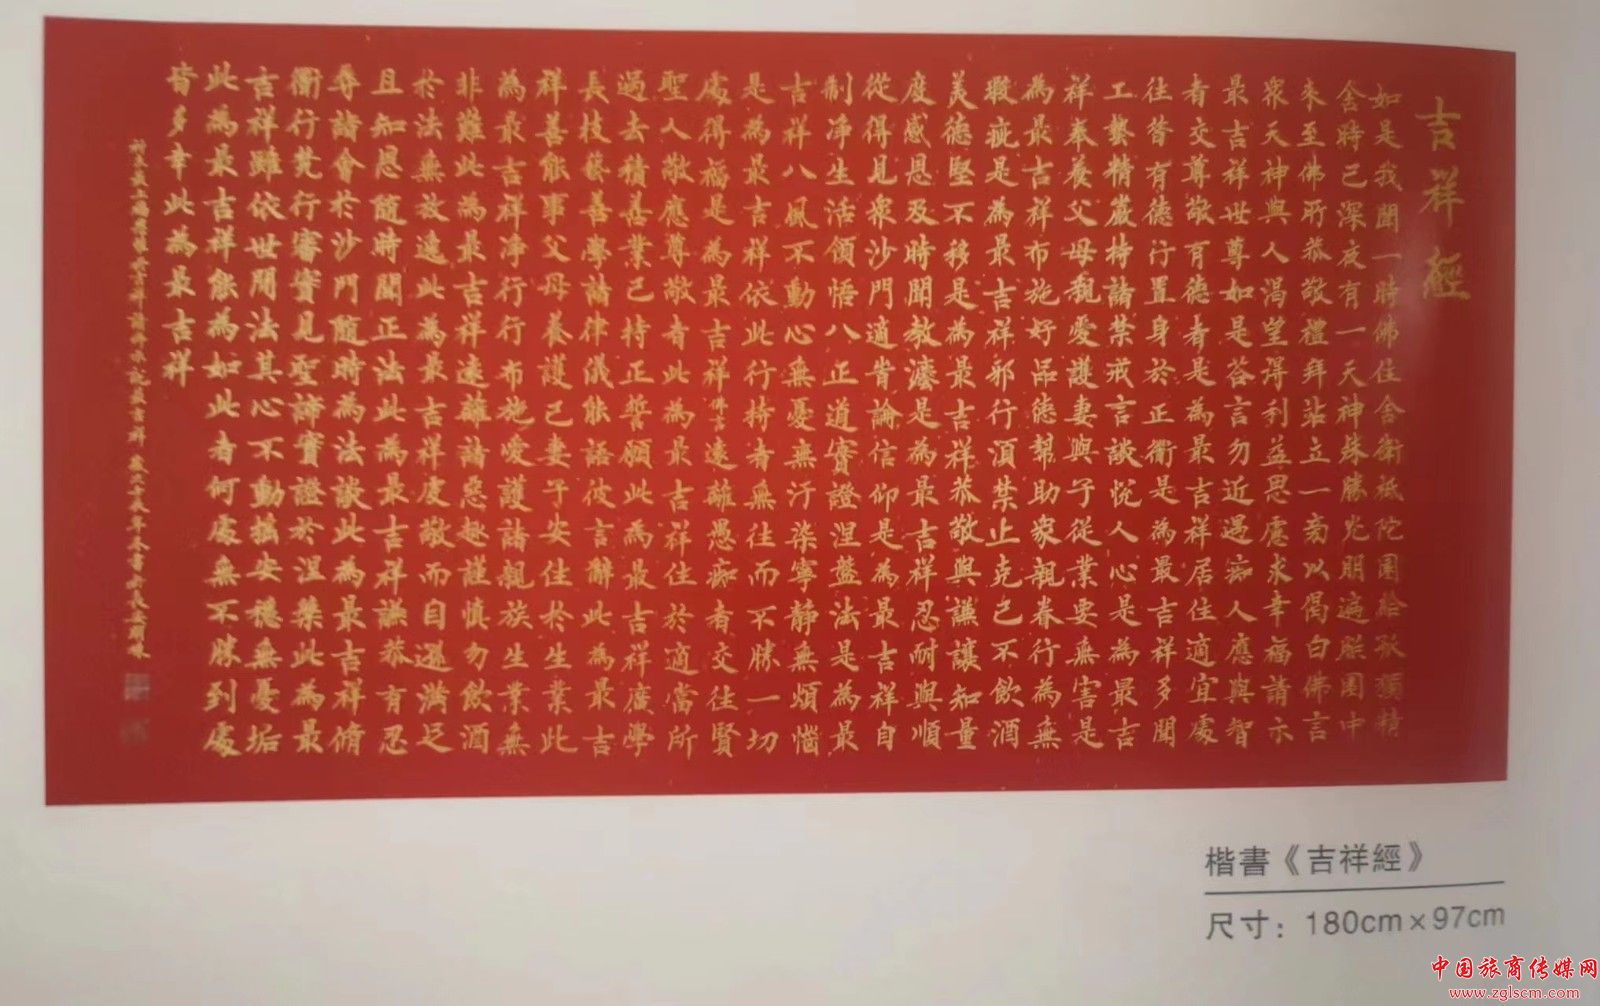 吉祥經
如是我聞一時佛住舍衛祇陀園給孤獨精
舍時已深夜有一天神殊勝光朋遍照園中
來至佛所恭敬禮拜站立一旁以偈白佛言
眾天神與人渴望得利益思慮求幸福請示
最吉祥世尊如是荅言勿近遇痴人應與智
者交尊敬有德者是為最吉祥居住適宜處
往昔有德行置身於正衢是為最吉祥多聞
工藝精嚴持諸禁戒言談悅人心是為最吉
祥奉養父母親愛護妻與子從業要無害是
為最吉祥布施好品德幫助眾親眷行為無
瑕疵是為最吉祥邪行須禁止克己不飲酒
美德堅不移是為最吉祥恭敬與謙讓知量
度感恩及時聞教法是為最吉祥忍耐與順
從得見眾沙門適旹論信仰是為最吉祥自
制淨生活領悟八正道實證涅盤法是為最
吉祥八風不動心無憂無汙染寧靜無煩惱
是為最吉祥依此行持者無往而不勝一切
處得福是為最吉祥佛言遠離愚痴者交往賢
聖人敬應尊敬者此為最吉祥住於適當所
過去積善業己持正誓願此為最吉祥廣學
長技藝善學諸律儀能語彼言辭此為最吉
祥善能事父母養護己妻子安住於生業此
為最吉祥淨行行布施愛護諸親族生業無
非難此為最吉祥遠離諸惡趣謹慎勿飲酒
於法無放逸此為最吉祥虔敬而自遜滿足
且知恩隨時聞正法此為最吉祥謙恭有忍
辱諸會於沙門隨時為法談此為最吉祥脩
衢行梵行審實見聖諦實證於涅槃此為最
吉祥雖依世間法其心不動搖安穩無憂垢
此為最吉祥能為如此者何處無不勝到處
皆多幸此為最吉祥
楷書《吉祥經》
尺寸：180cm×97cm
中国旅商传媒网
www.zglscm.com